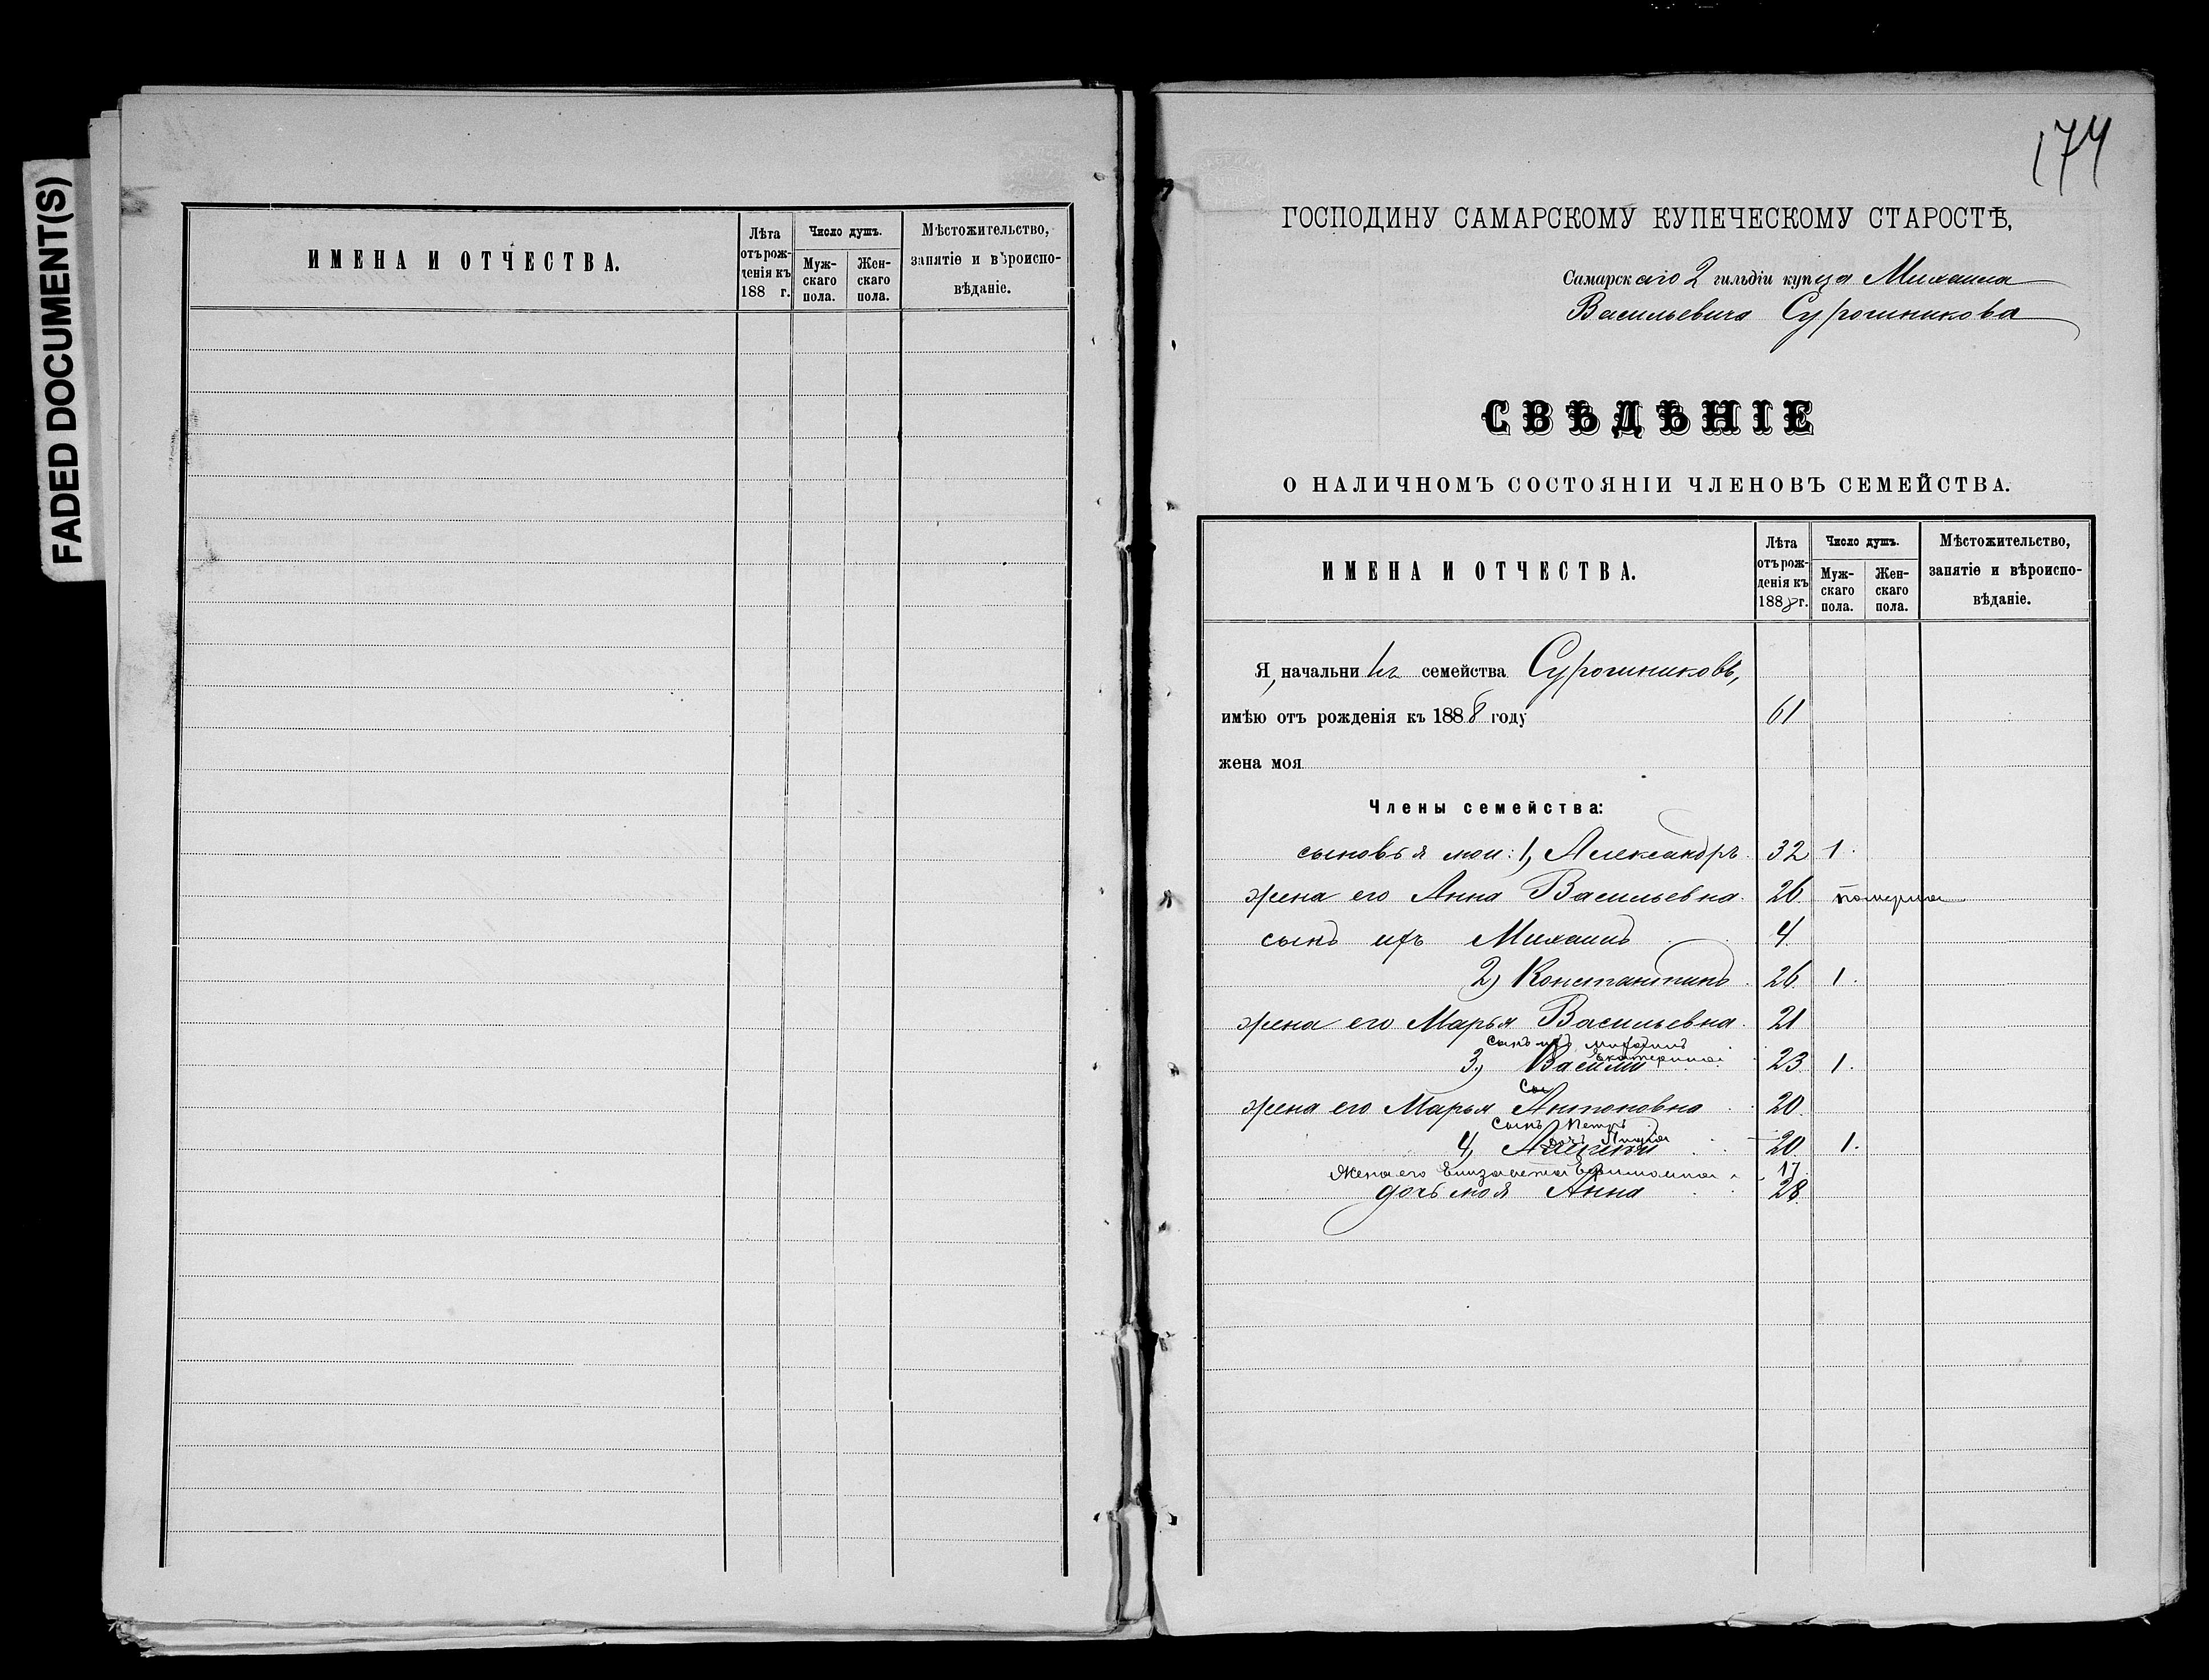 FADED DOCUMENT(S)
ИМЕНА И ОТЧЕСТВА.
Лѣта отъ рожденія къ 188 г.
Число душъ.
Мужскаго пола.
Женскаго пола.
Мѣстожительство, занятіе и вѣроисповѣданіе.
174
ГОСПОДИНУ САМАРСКОМУ КУПЕЧЕСКОМУ СТАРОСТѢ,
Самарскаго 2 гильдіи купца Михаила
Васильевича Сурошникова
СВѢДѢНІЕ
О НАЛИЧНОМЪ СОСТОЯНІИ ЧЛЕНОВЪ СЕМЕЙСТВА.
ИМЕНА И ОТЧЕСТВА.
Лѣта отъ рожденія къ 1888 г.
Число душъ.
Мужскаго пола.
Женскаго пола.
Мѣстожительство, занятіе и вѣроисповѣданіе.
Я, начальникъ семейства Сурошниковъ,
имѣю отъ рожденія къ 1888 году 61
жена моя
Члены семейства:
сыновья мои: 1, Александръ 32 1.
жена его Анна Васильевна 26 померла
сынъ ихъ Михаилъ 4
2) Константинъ 26 1.
жена его Марья Васильевна 21
сынъ ихъ Михаилъ
Екатерина
3, Василій 23 1.
Сы
жена его Марья Антоновна 20
Сынъ Петръ
дочь Лидія
4, Алексѣй 20 1.
Жена его Елизавета 17
дочь моя Анна 28